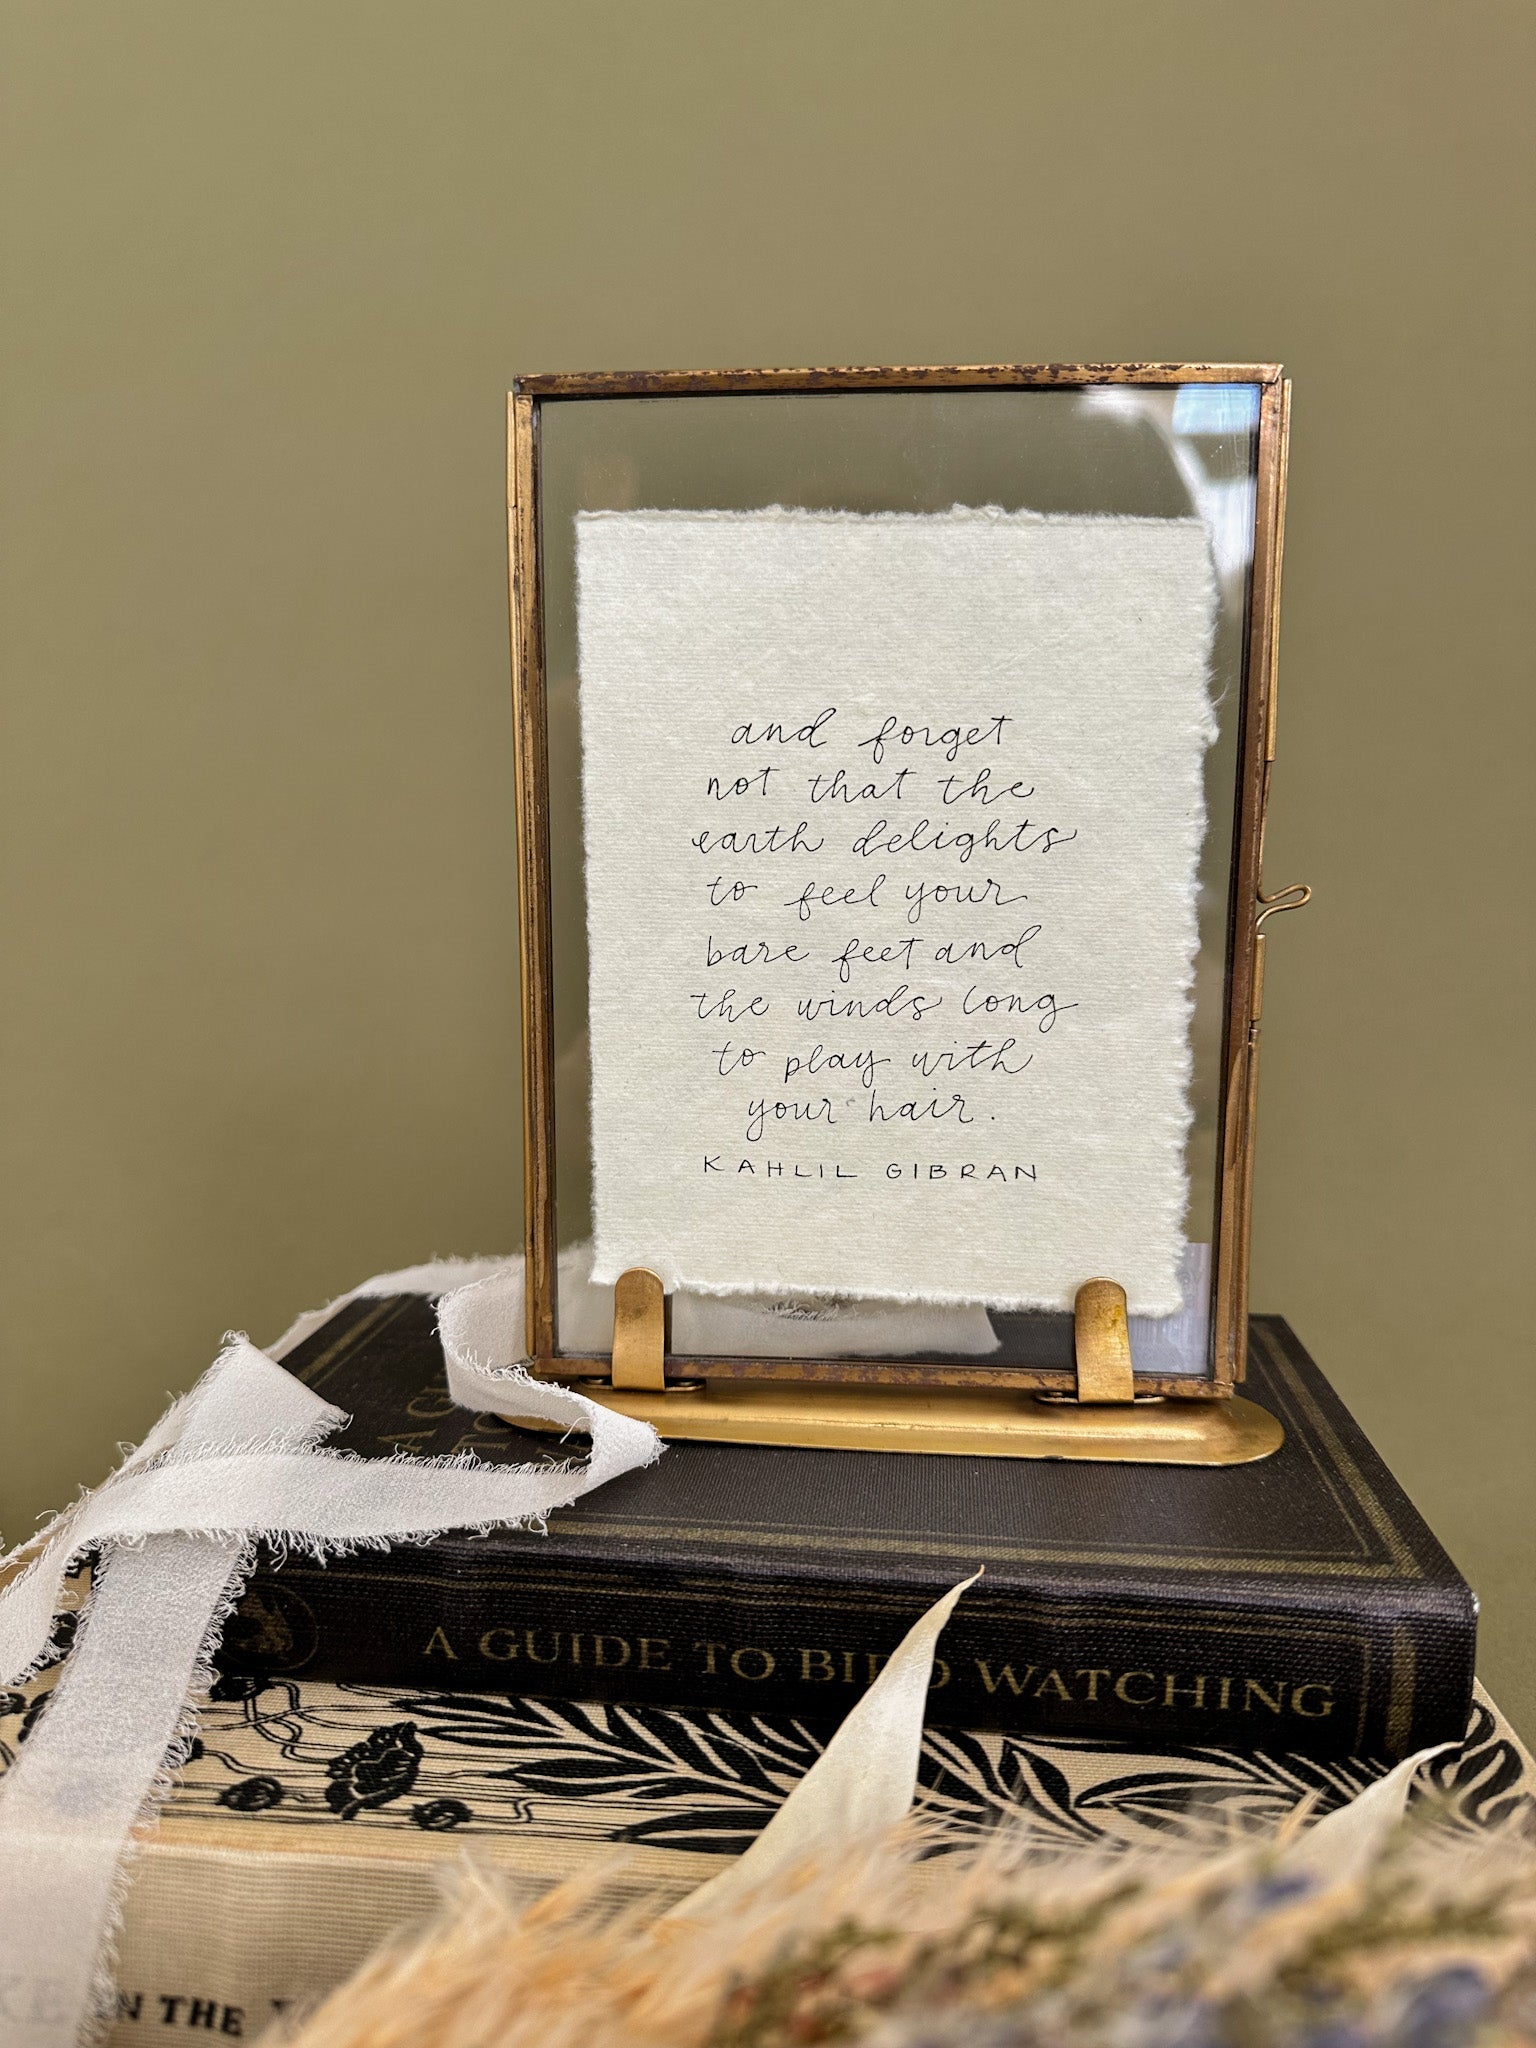 and forget
not that the
earth delights
to feel your
bare feet and
the winds long
to play with
your hair.
KAHLIL GIBRAN
A GUIDE TO BIRD WATCHING
IN THE